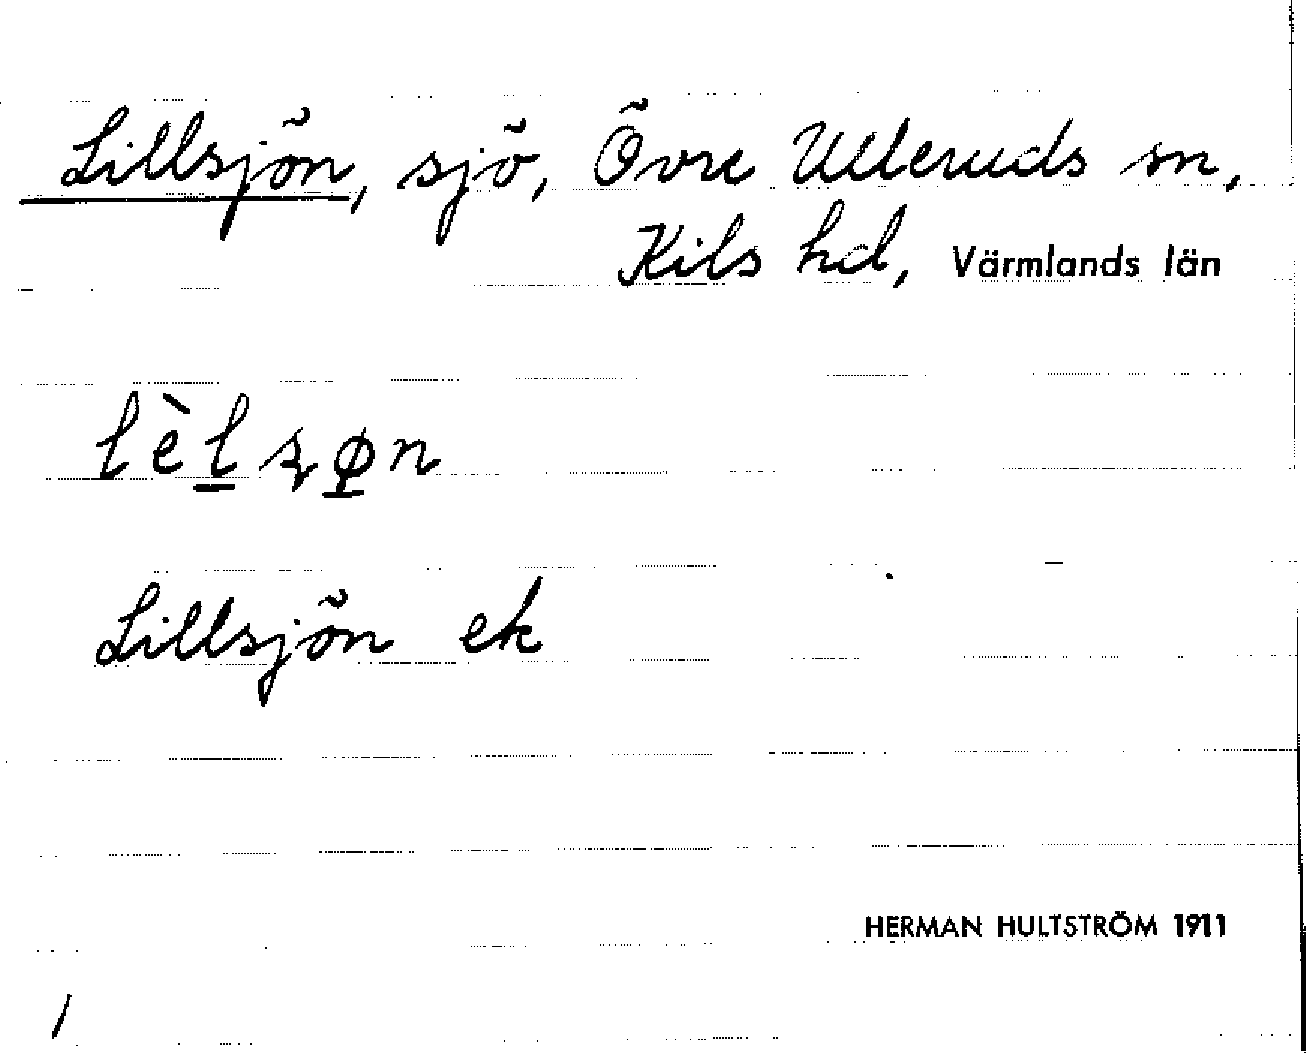 Lillsjön, sjö, Övre Ulleruds sn,
Kils hd, Värmlands län
lèlsøn
Lillsjön ek
HERMAN HULTSTRÖM 1911
/